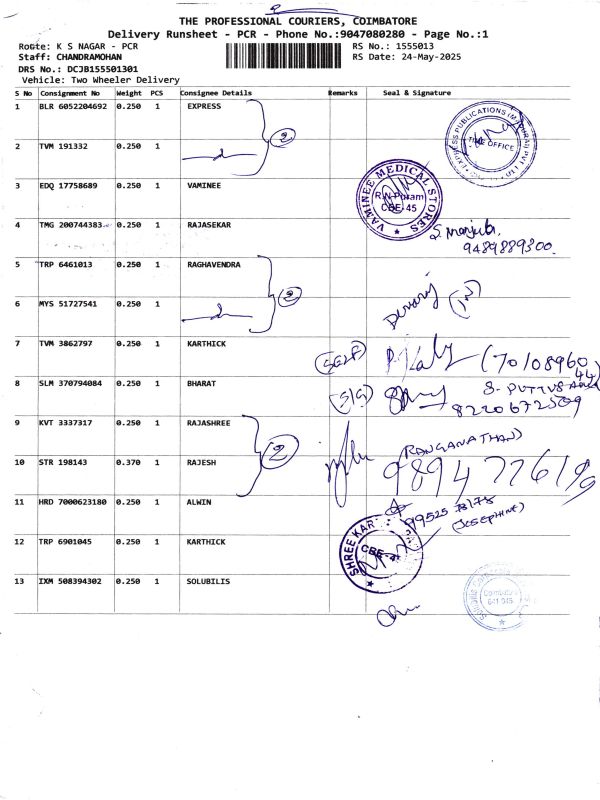 THE PROFESSIONAL COURIERS, COIMBATORE
Delivery Runsheet - PCR - Phone No.:9047080280 - Page No.:1
Route: K S NAGAR - PCR
RS No.: 1555013
Staff: CHANDRAMOHAN
RS Date: 24-May-2025
DRS No.: DCJB155501301
Vehicle: Two Wheeler Delivery
S No Consignment No Weight PCS Consignee Details Remarks Seal & Signature
1 BLR 6052204692 0.250 1 EXPRESS
2
2 TVM 191332 0.250 1
THE OFFICE
3 EDQ 17758689 0.250 1 VAMINEE
VAMINEE MEDICAL STORES
R.N.Puram
CBE-45
4 TMG 200744383 0.250 1 RAJASEKAR
S. Manjula,
9489889300
5 TRP 6461013 0.250 1 RAGHAVENDRA
2
6 MYS 51727541 0.250 1
7 TVM 3862797 0.250 1 KARTHICK
(7010896044
8 SLM 370794084 0.250 1 BHARAT
(SIG)
8220672509
9 KVT 3337317 0.250 1 RAJASHREE
2
(RANGANATHAN)
10 STR 198143 0.370 1 RAJESH
11 HRD 7000623180 0.250 1 ALWIN
99525 78178
(JOSEPHINE)
12 TRP 6901045 0.250 1 KARTHICK
SHREE KAR
13 IXM 508394302 0.250 1 SOLUBILIS
Coimbatore
641 045